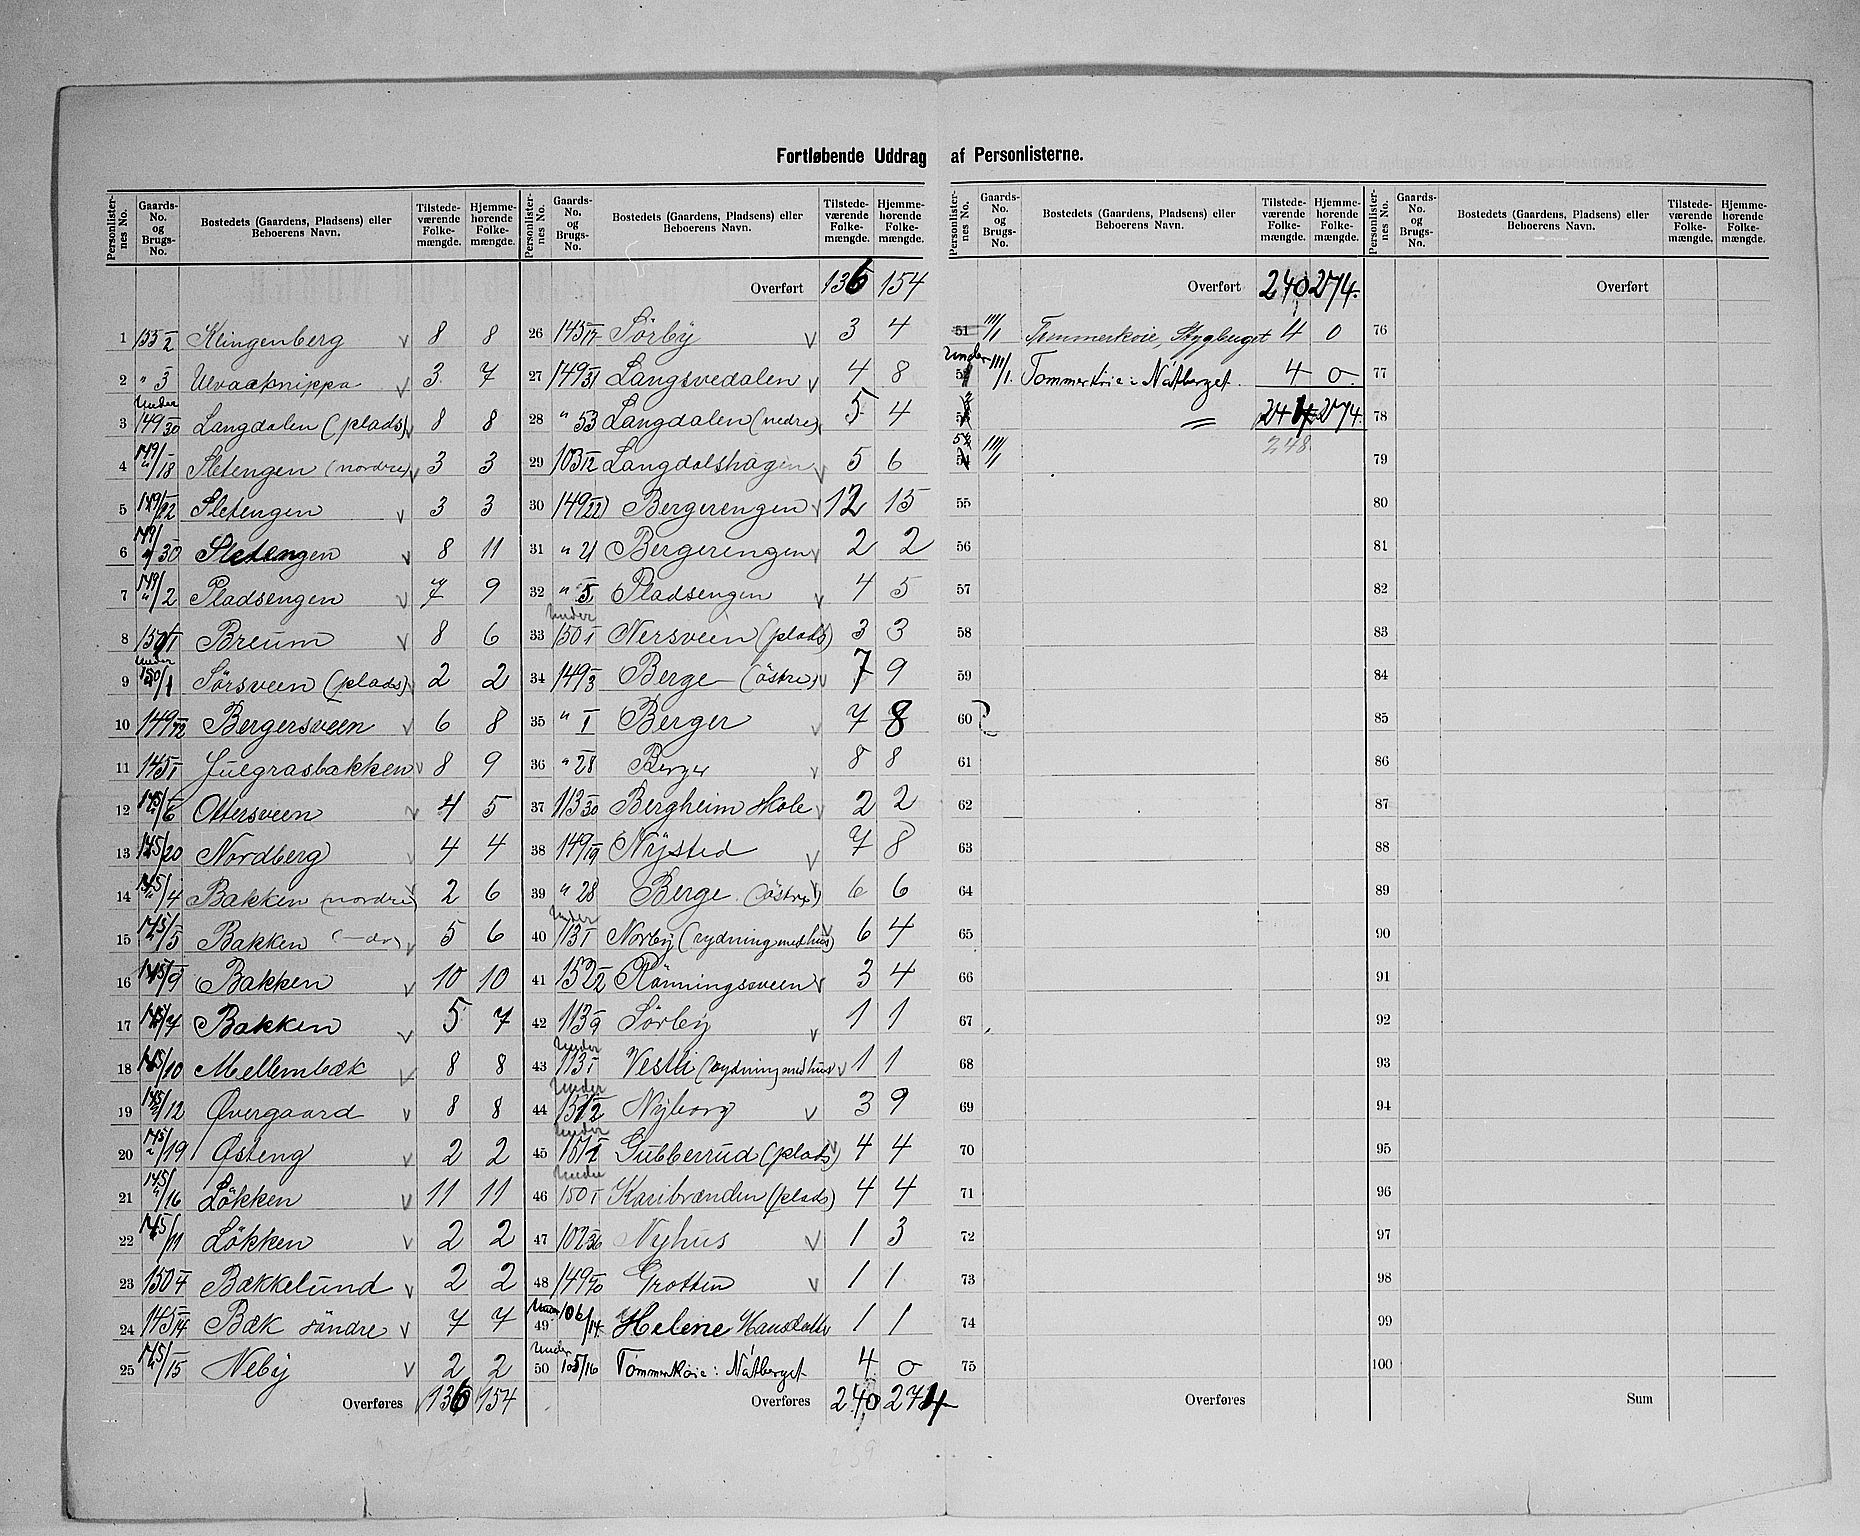 Fortløbende Uddrag af Personlisterne.
Personlister-nes No. | Gaards-No. og Brugs-No. | Bostedets (Gaardens, Pladsens) eller Beboerens Navn. | Tilstede-værende Folke-mængde. | Hjemme-hørende Folke-mængde.
1 153/2 Klingenberg v 8 8
2 " 3 Ulvaaknippa v 3 7
3 Under 149/30 Langdalen (plads) v 8 8
4 149/18 Sletengen (nordre) v 3 3
5 149/22 Sletengen v 3 3
6 149/30 Sletengen v 8 11
7 149/2 Pladsengen v 7 9
8 150/1 Breum v 8 6
9 Under 150/1 Sörsveen (plads) v 2 2
10 149/12 Bergersveen v 6 8
11 145/1 Julgrasbakken v 8 9
12 145/6 Ottersveen v 4 5
13 145/20 Nordberg v 4 4
14 145/4 Bakken (nordre) v 2 6
15 145/5 Bakken (—do) v 5 6
16 145/9 Bakken v 10 10
17 145/7 Bakken v 5 7
18 145/10 Mellembæk v 8 8
19 145/12 Øvergaard v 8 8
20 145/19 Østeng v 2 2
21 145/16 Lökken v 11 11
22 145/11 Lökken v 2 2
23 150/4 Bækkelund v 2 2
24 145/14 Bæk söndre v 7 7
25 145/15 Neby v 2 2
Overføres 136 154
Personlister-nes No. | Gaards-No. og Brugs-No. | Bostedets (Gaardens, Pladsens) eller Beboerens Navn. | Tilstede-værende Folke-mængde. | Hjemme-hørende Folke-mængde.
Overført 136 154
26 145/17 Sörby v 3 4
27 149/31 Langsvedalen v 4 8
28 " 53 Langdalen (nedre) v 5 4
29 103/12 Langdalshagen v 5 6
30 149/22 Bergerengen v 12 15
31 " 21 Bergerengen v 2 2
32 " 5 Pladsengen v 4 5
33 Under 150/1 Nersveen (plads) 3 3
34 149/3 Berge (östre) v 7 9
35 " 1 Berger v 7 8
36 " 28 Berger v 8 8
37 113/30 Bergheim Skole v 2 2
38 149/19 Nysted v 7 8
39 " 28 Berge (östre) v 6 6
40 Under 113/1 Norby (rydning med hus) 6 4
41 152/2 Rönningssveen v 3 4
42 113/9 Sörby v 1 1
43 Under 113/1 Vestli (rydning med hus v 1 1
44 Under 151/2 Nyborg v 3 9
45 Under 151/1 Gubberud (plads) 4 4
46 Under 150/1 Karibrænden (plads) 4 4
47 102/36 Nyhus v 1 3
48 149/40 Grotten v 1 1
49 Under 106/14 Helene Hansdatter 1 1
50 Under 105/16 Tømmerkoie i Nátberget 4 0
Overføres 240 274
239
Personlister-nes No. | Gaards-No. og Brugs-No. | Bostedets (Gaardens, Pladsens) eller Beboerens Navn. | Tilstede-værende Folke-mængde. | Hjemme-hørende Folke-mængde.
Overført 240 274.
51 111/1 Tømmerkoie, Stygberget 4 0
52 Under 111/1. Tømmerkoie i Nátberget. 4 0.
53 = 244 274.
54 111/1 248
55
56
57
58
59
60
61
62
63
64
65
66
67
68
69
70
71
72
73
74
75
Overføres
Personlister-nes No. | Gaards-No. og Brugs-No. | Bostedets (Gaardens, Pladsens) eller Beboerens Navn. | Tilstede-værende Folke-mængde. | Hjemme-hørende Folke-mængde.
Overført
76
77
78
79
80
81
82
83
84
85
86
87
88
89
90
91
92
93
94
95
96
97
98
99
100
Sum